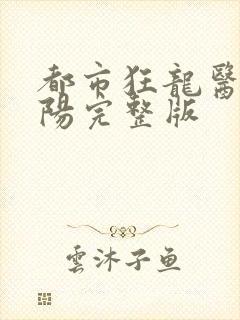 都市狂龍醫
陽完整版
雲沐子魚